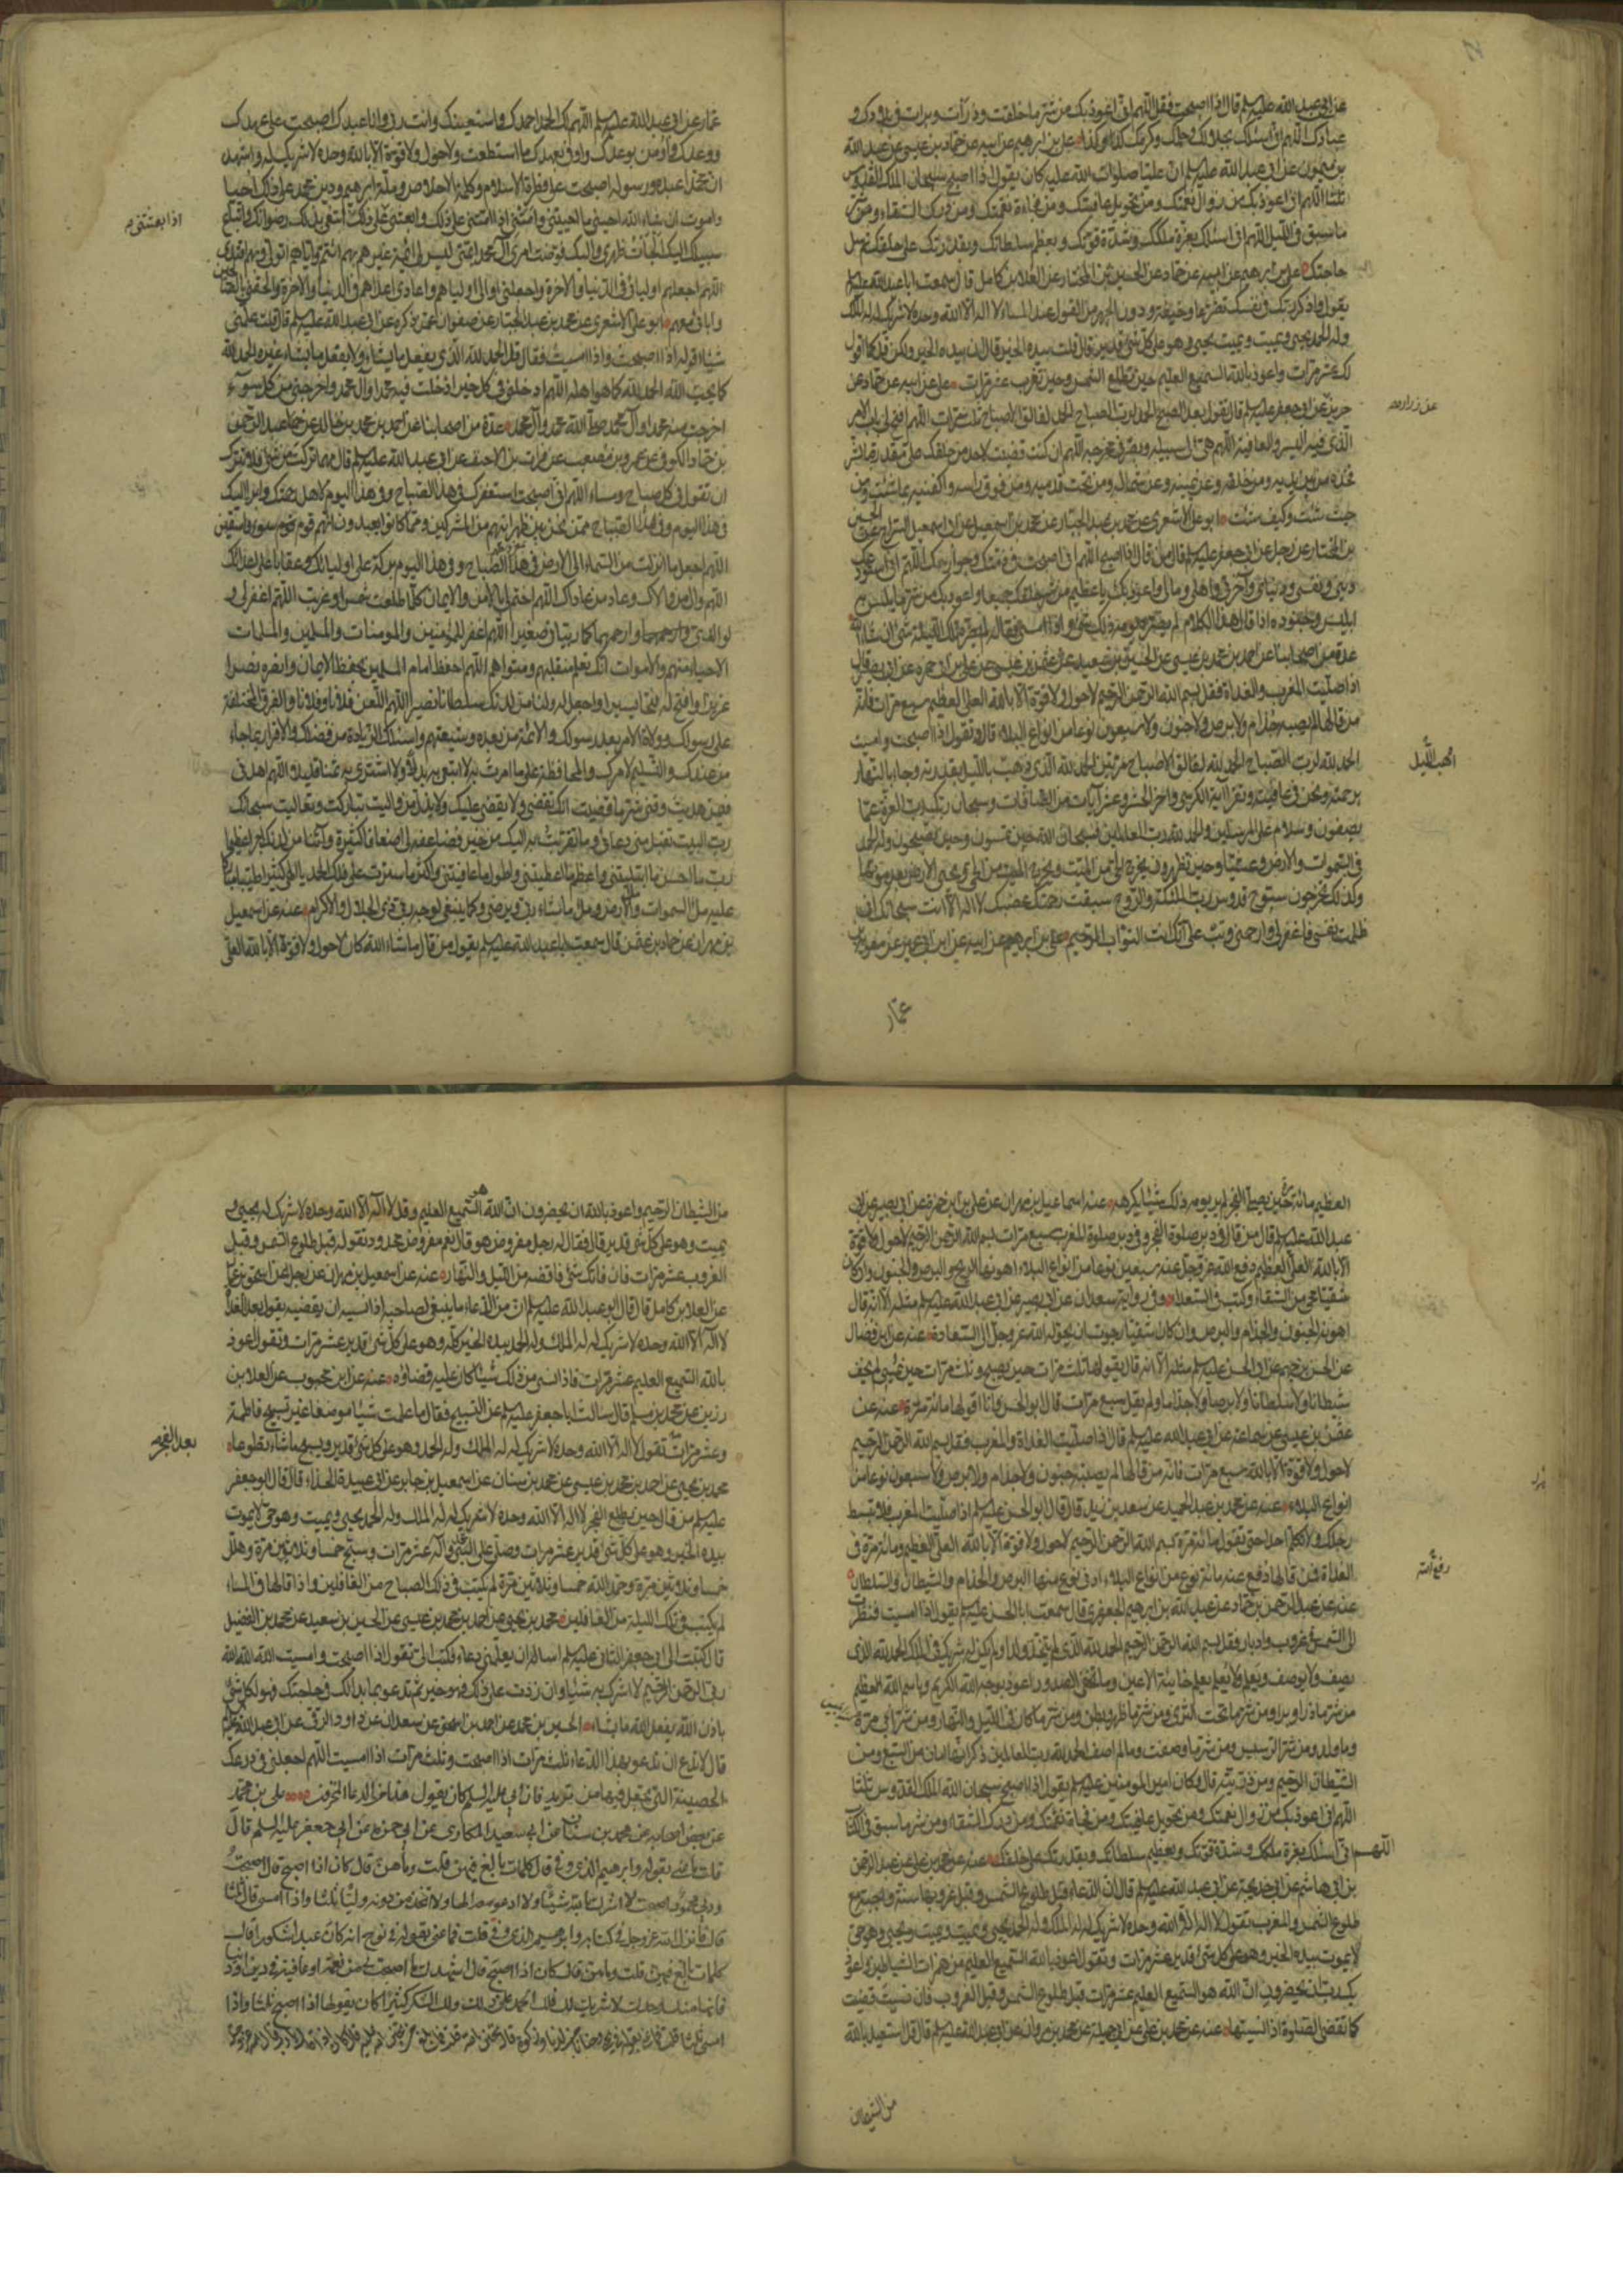 عن ابى عبد الله عليه السلم قال اذا اصبحت فقل اللهم انى اعوذ بك من شر ما خلقت وذرأت وبرأت فى بلادك و
عبادك اللهم انى اسئلك بجلالك وجمالك وكرمك كذا وكذا على بن ابرهيم عن ابيه عن حماد بن عيسى عن عبد الله
بن ميمون عن ابى عبد الله عليه السلم ان عليا صلوات الله عليه كان يقول اذا اصبح سبحان الملك القدوس
ثلثا اللهم انى اعوذ بك من زوال نعمتك ومن تحويل عافيتك ومن فجاءة نقمتك ومن درك الشقاء ومن شر
ما سبق فى الليل اللهم انى اسئلك بعزة ملكك وشدة قوتك وبعظم سلطانك وبقدرتك على خلقك ثم سل
حاجتك على بن ابرهيم عن ابيه عن حماد عن الحسين بن المختار عن العلا بن كامل قال سمعت ابا عبد الله عليه السلم
يقول واذكر ربك فى نفسك تضرعا وخيفة ودون الجهر من القول عند المساء لا اله الا الله وحده لا شريك له له الملك
وله الحمد يحيى ويميت ويميت ويحيى وهو على كل شئ قدير قال قلت بيده الخير قال ان بيده الخير ولكن قل كما اقول
لك عشر مرات واعوذ بالله السميع العليم حين تطلع الشمس وحين تغرب عشر مرات على عن ابيه عن حماد عن
حريز عن ابى جعفر عليه السلم قال يقول بعد الصبح الحمد لرب الصباح الحمد لفالق الاصباح ثلث مرات اللهم افتح لى باب الامر
عن زراره
الذى فيه اليسر والعافية اللهم هيئ لى سبيله وبصرنى مخرجه اللهم ان كنت قضيت لاحد من خلقك على مقدرة بالشر
فخذه من بين يديه ومن خلفه وعن يمينه وعن شماله ومن تحت قدميه ومن فوق راسه واكفنيه بما شئت ومن
حيث شئت وكيف شئت ابو على الاشعرى عن محمد بن عبد الجبار عن محمد بن اسمعيل عن ابى اسمعيل السراج عن الحسين
بن المختار عن رجل عن ابى جعفر عليه السلم قال من قال اذا اصبح اللهم انى اصبحت فى ذمتك وجوارك اللهم انى استودعك
دينى ونفسى ودنياى وآخرتى واهلى ومالى واعوذ بك يا عظيم من شر خلقك جميعا واعوذ بك من شر ما يبلس به
ابليس وجنوده اذا قال هذا الكلام لم يضره يومه ذلك شئ واذا امسى فقاله لم يضره تلك الليلة شئ ان شاء الله
عدة من اصحابنا عن احمد بن محمد بن عيسى عن الحسين بن سعيد عن عثمن بن عيسى عن على بن ابى حمزه عن ابى بصير قال
اذا صليت المغرب والغداة فقل بسم الله الرحمن الرحيم لا حول ولا قوة الا بالله العلى العظيم سبع مرات فانه
من قالها لم يصبه جذام ولا برص ولا جنون ولا سبعون نوعا من انواع البلاء قال وتقول اذا اصبحت وامسيت
الحمد لله لرب الصباح الحمد لله لفالق الاصباح مرتين الحمد لله الذى ذهب بالليل بقدرته وجاء بالنهار
اذهب الليل
برحمته ونحن فى عافيته وتقرا آية الكرسى واخر الحشر وعشر آيات من الصافات وسبحان ربك رب العزة عما
يصفون وسلام على المرسلين والحمد لله رب العالمين فسبحان الله حين تمسون وحين تصبحون وله الحمد
فى السموات والارض وعشيا وحين تظهرون يخرج الحى من الميت ويخرج الميت من الحى ويحيى الارض بعد موتها
وكذلك تخرجون سبوح قدوس رب الملئكة والروح سبقت رحمتك غضبك لا اله الا انت سبحانك انى
ظلمت نفسى فاغفر لى وارحمنى وتب على انك انت التواب الرحيم على بن ابرهيم عن ابيه عن ابن ابى عمير عن معوية بن
عمار
عمار عن ابى عبد الله عليه السلم اللهم لك الحمد احمدك واستعينك وانت ربى وانا عبدك اصبحت على عهدك
ووعدك وأومن بوعدك واوفى بعهدك ما استطعت ولا حول ولا قوة الا بالله وحده لا شريك له واشهد
ان محمدا عبده ورسوله اصبحت على فطرة الاسلام وكلمة الاخلاص وملة ابرهيم ودين محمد على ذلك احيا
واموت ان شاء الله احينى ما احييتنى وامتنى اذا امتنى على ذلك وابعثنى على ذلك ابتغى بذلك رضوانك واتباع
اذا بعثتنى
سبيلك اليك الجأت ظهرى واليك فوضت امرى آل محمد ائمتى ليس لى ائمة غيرهم بهم ائتم واياهم اتولى وبهم اقتدى
اللهم اجعلهم اوليائى فى الدنيا والاخرة واجعلنى اوالى اولياءهم واعادى اعداءهم فى الدنيا والاخرة والحقنى بالصالحين
وابائى معهم ابو على الاشعرى عن محمد بن عبد الجبار عن صفوان عمن ذكره عن ابى عبد الله عليه السلم قال قلت علمنى
شيئا اقوله اذا اصبحت واذا امسيت فقال قل الحمد لله الذى يفعل ما يشاء ولا يفعل ما يشاء غيره الحمد لله
كما يحب الله الحمد لله كما هو اهله اللهم ادخلنى فى كل خير ادخلت فيه محمدا وال محمد واخرجنى من كل سوء
اخرجت منه محمدا وآل محمد صلى الله على محمد وآل محمد عدة من اصحابنا عن احمد بن محمد بن خالد عن عبد الرحمن
بن حماد الكوفى عن عمرو بن مصعب عن فرات بن الاحنف عن ابى عبد الله عليه السلم قال مهما تركت من شئ فلا تترك
ان تقول فى كل صباح ومساء اللهم انى اصبحت استغفرك فى هذا الصباح وفى هذا اليوم لاهل رحمتك وابرأ اليك
فى هذا اليوم وفى هذا الصباح ممن نحن بين ظهرانيهم من المشركين ومما كانوا يعبدون انهم كانوا قوم سوء فاسقين
اللهم اجعل ما انزلت من السماء الى الارض فى هذا الصباح وفى هذا اليوم بركة على اوليائك وعقابا على اعدائك
اللهم وال من والاك وعاد من عاداك اللهم اختم لى بالامن والايمان كلما طلعت شمس او غربت اللهم اغفر لى و
لوالدى وارحمهما كما ربيانى صغيرا اللهم اغفر للمؤمنين والمومنات والمسلمين والمسلمات
الاحياء منهم والاموات انك تعلم منقلبهم ومثواهم اللهم احفظ امام المسلمين بحفظ الايمان وانصره نصرا
عزيزا وافتح له فتحا يسيرا واجعل له ولنا من لدنك سلطانا نصيرا اللهم العن فلانا وفلانا والفرق المختلفة
على رسولك وولاة الامر بعد رسولك والائمة من بعده وشيعتهم واسئلك الزيادة من فضلك والاقرار بما جاء
من عندك والتسليم لامرك والمحافظة على ما امرت به لا ابتغى به بدلا ولا اشترى به ثمنا قليلا اللهم اهدنى
فيمن هديت وقنى شر ما قضيت انك تقضى ولا يقضى عليك ولا يذل من واليت تباركت وتعاليت سبحانك
رب البيت تقبل منى دعائى وما تقربت به اليك من خير فضاعفه لى اضعافا كثيرة وآتنا من لدنك اجرا عظيما
رب ما احسن ما ابتليتنى واعظم ما اعطيتنى واطول ما عافيتنى واكثر ما سترت على فلك الحمد يا الهى كثيرا طيبا مباركا
عليه ملء السموات وملء الارض وملء ما شاء ربى ورضى وكما ينبغى لوجه ربى ذى الجلال والاكرام عنه عن اسمعيل
بن مهران عن حماد بن عثمن قال سمعت ابا عبد الله عليه السلم يقول من قال ما شاء الله كان لا حول ولا قوة الا بالله العلى
العظيم مائة مرة حين يصلى الفجر لم ير يومه ذلك شيئا يكرهه عنه عن اسماعيل بن مهران عن على بن ابى حمزة عن ابى بصير عن ابى
عبد الله عليه السلم قال من قال فى دبر صلوة الفجر وفى دبر صلوة المغرب سبع مرات بسم الله الرحمن الرحيم لا حول ولا قوة
الا بالله العلى العظيم دفع الله عز وجل عنه سبعين نوعا من انواع البلاء اهونها الريح والبرص والجنون وان كان
شقيا محى من الشقاء وكتب فى السعداء وفى رواية سعدان عن ابى بصير عن ابى عبد الله عليه السلم مثله الا انه قال
اهونه الجنون والجذام والبرص وان كان شقيا رجوت ان يحوله الله عز وجل الى السعادة عنه عن ابن فضال
عن الحسن بن جهم عن ابى الحسن عليه السلم مثله الا انه قال يقولها ثلث مرات حين يصبح وثلث مرات حين يمسى لم يخف
شيطانا ولا سلطانا ولا برصا ولا جذاما ولم يقل سبع مرات قال ابو الحسن وانا اقولها مائة مرة عنه عن
عثمن بن عيسى عن سماعة عن ابى عبد الله عليه السلم قال اذا صليت الغداة والمغرب فقل بسم الله الرحمن الرحيم
لا حول ولا قوة الا بالله سبع مرات فانه من قالها لم يصبه جنون ولا جذام ولا برص ولا سبعون نوعا من
انواع البلاء عنه عن محمد بن عبد الحميد عن سعد بن زيد قال قال ابو الحسن عليه السلم اذا صليت المغرب فلا تبسط
رجلك ولا تكلم احدا حتى تقول مائة مرة بسم الله الرحمن الرحيم لا حول ولا قوة الا بالله العلى العظيم ومائة مرة فى
الغداة فمن قالها دفع عنه مائة نوع من انواع البلاء ادنى نوع منها البرص والجذام والشيطان والسلطان
رفع الله
عنه عن عبد الرحمن بن حماد عن عبد الله بن ابرهيم الجعفرى قال سمعت ابا الحسن عليه السلم يقول اذا امسيت فنظرت
الى الشمس فى غروب وادبار فقل بسم الله الرحمن الرحيم الحمد لله الذى لم يتخذ ولدا ولم يكن له شريك فى الملك الحمد لله الذى
يصف ولا يوصف ويعلم ولا يعلم يعلم خائنة الاعين وما تخفى الصدور واعوذ بوجه الله الكريم وباسم الله العظيم
من شر ما ذرا وبرا ومن شر ما تحت الثرى ومن شر ما ظهر وبطن ومن شر ما كان فى الليل والنهار ومن شر ابى مرة
وما ولد ومن شر الرسيس ومن شر ما وصفت وما لم اصف الحمد لله رب العالمين ذكر انها امان من السبع ومن
الشيطان الرجيم ومن ذريته قال وكان امير المومنين عليه السلم يقول اذا اصبح سبحان الله الملك القدوس ثلثا
اللهم انى اعوذ بك من زوال نعمتك ومن تحويل عافيتك ومن فجاة نقمتك ومن درك الشقاء ومن شر ما سبق فى الكتاب
اللهم انى اسئلك بعزة ملكك وشدة قوتك وبعظيم سلطانك وبقدرتك على خلقك عنه عن محمد بن على عن عبد الرحمن
بن ابى هاشم عن ابى خديجة عن ابى عبد الله عليه السلم قال ان الدعاء قبل طلوع الشمس وقبل غروبها سنة واجبة مع
طلوع الشمس والمغرب تقول لا اله الا الله وحده لا شريك له له الملك وله الحمد يحيى ويميت ويميت ويحيى وهو حى
لا يموت بيده الخير وهو على كل شئ قدير عشر مرات وتقول اعوذ بالله السميع العليم من همزات الشياطين واعوذ
بك رب ان يحضرون ان الله هو السميع العليم عشر مرات قبل طلوع الشمس وقبل الغروب فان نسيت قضيت
كما تقضى الصلوة اذا نسيتها عنه عن محمد بن على عن ابى جميلة عن محمد بن مروان عن ابى عبد الله عليه السلم قال قل استعيذ بالله
من الشيطان
من الشيطان الرجيم واعوذ بالله ان يحضرون ان الله هو السميع العليم وقل لا اله الا الله وحده لا شريك له يحيى و
يميت وهو على كل شئ قدير قال فقال له رجل مفروض هو قال نعم مفروض محدود تقوله قبل طلوع الشمس وقبل
الغروب عشر مرات فان فاتك شئ فاقضه من الليل والنهار عنه عن اسمعيل بن مهران عن رجل عن اسحق بن عمار
عن العلا بن كامل قال قال ابو عبد الله عليه السلم ان من الدعاء ما ينبغى لصاحبه اذا نسيه ان يقضيه يقول بعد الغداة
لا اله الا الله وحده لا شريك له له الملك وله الحمد بيده الخير كله وهو على كل شئ قدير عشر مرات وتقول اعوذ
بالله السميع العليم عشر مرات فاذا نسى من ذلك شيئا كان عليه قضاؤه عنه عن ابن محبوب عن العلا بن
رزين عن محمد بن مسلم قال سالت ابا جعفر عليه السلم عن التسبيح فقال ما علمت شيئا موضفا غير تسبيح فاطمة
وعشر مرات تقول لا اله الا الله وحده لا شريك له له الملك وله الحمد وهو على كل شئ قدير ويسبح ما شاء تطوعا
بعد الفجر
محمد بن يحيى عن احمد بن محمد بن عيسى عن محمد بن سنان عن اسمعيل بن جابر عن ابى عبيدة الحذاء قال قال ابو جعفر
عليه السلم من قال حين يطلع الفجر لا اله الا الله وحده لا شريك له له الملك وله الحمد يحيى ويميت وهو حى لا يموت
بيده الخير وهو على كل شئ قدير عشر مرات وصلى على النبى وآله عشر مرات وسبح خمسا وثلاثين مرة وهلل
خمسا وثلاثين مرة وحمد الله خمسا وثلاثين مرة لم يكتب فى ذلك الصباح من الغافلين واذا قالها فى المساء
لم يكتب فى تلك الليلة من الغافلين محمد بن يحيى عن احمد بن محمد بن عيسى عن الحسين بن سعيد عن محمد بن الفضيل
قال كتبت الى ابى جعفر الثانى عليه السلم اساله ان يعلمنى دعاء فكتب الى تقول اذا اصبحت وامسيت الله الله الله
ربى الرحمن الرحيم لا اشرك به شيئا وان زدت على ذلك فهو خير ثم تدعو بما بدا لك فى حاجتك فهو لكل شئ
باذن الله يفعل الله ما يشاء الحسين بن محمد عن احمد بن اسحق عن سعدان عن داود الرقى عن ابى عبد الله عليه السلم
قال لا تدع ان تدعو بهذا الدعاء ثلث مرات اذا اصبحت وثلث مرات اذا امسيت اللهم اجعلنى فى درعك
الحصينة التى تجعل فيها من تريد فان ابى عليه السلم كان يقول هذا من الدعاء المخزون على بن محمد
عن بعض اصحابه عن محمد بن سنان عن ابى سعيد المكارى عن ابى حمزه عن ابى جعفر عليه السلم قال
قلت ما عنى بقوله وابرهيم الذى وفى قال كلمات بالغ فيهن قلت وما هن قال كان اذا اصبح قال اصبحت
وربى محمود اصبحت لا اشرك بالله شيئا ولا ادعو مع الله الها ولا اتخذ من دونه وليا ثلثا واذا امسى قال ثلثا
قال فانزل الله عز وجل فى كتابه وابرهيم الذى وفى قلت فما عنى بقوله فى نوح انه كان عبدا شكورا قال
كلمات بالغ فيهن قلت وما هن قال كان اذا اصبح قال اشهدك ما اصبحت بى من نعمة او عافية فى دين او دنيا
فانها منك وحدك لا شريك لك فلك الحمد على ذلك ولك الشكر كثيرا كان يقولها اذا اصبح ثلثا واذا
امسى ثلثا